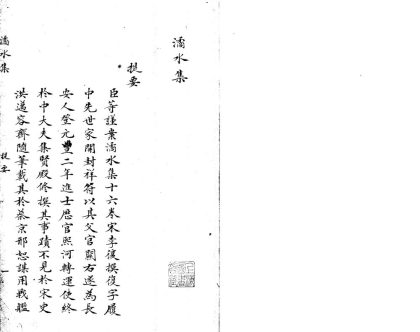 潏水集
提要
臣等謹案潏水集十六卷宋李復撰復字履
中先世家開封祥符以其父官關右遂為長
安人登元豐二年進士歷官熙河轉運使終
於中大夫集賢殿修撰其事蹟不見於宋史
洪邁容齋隨筆載其於蔡京邢恕謀用戰艦
潏水集
提要
一